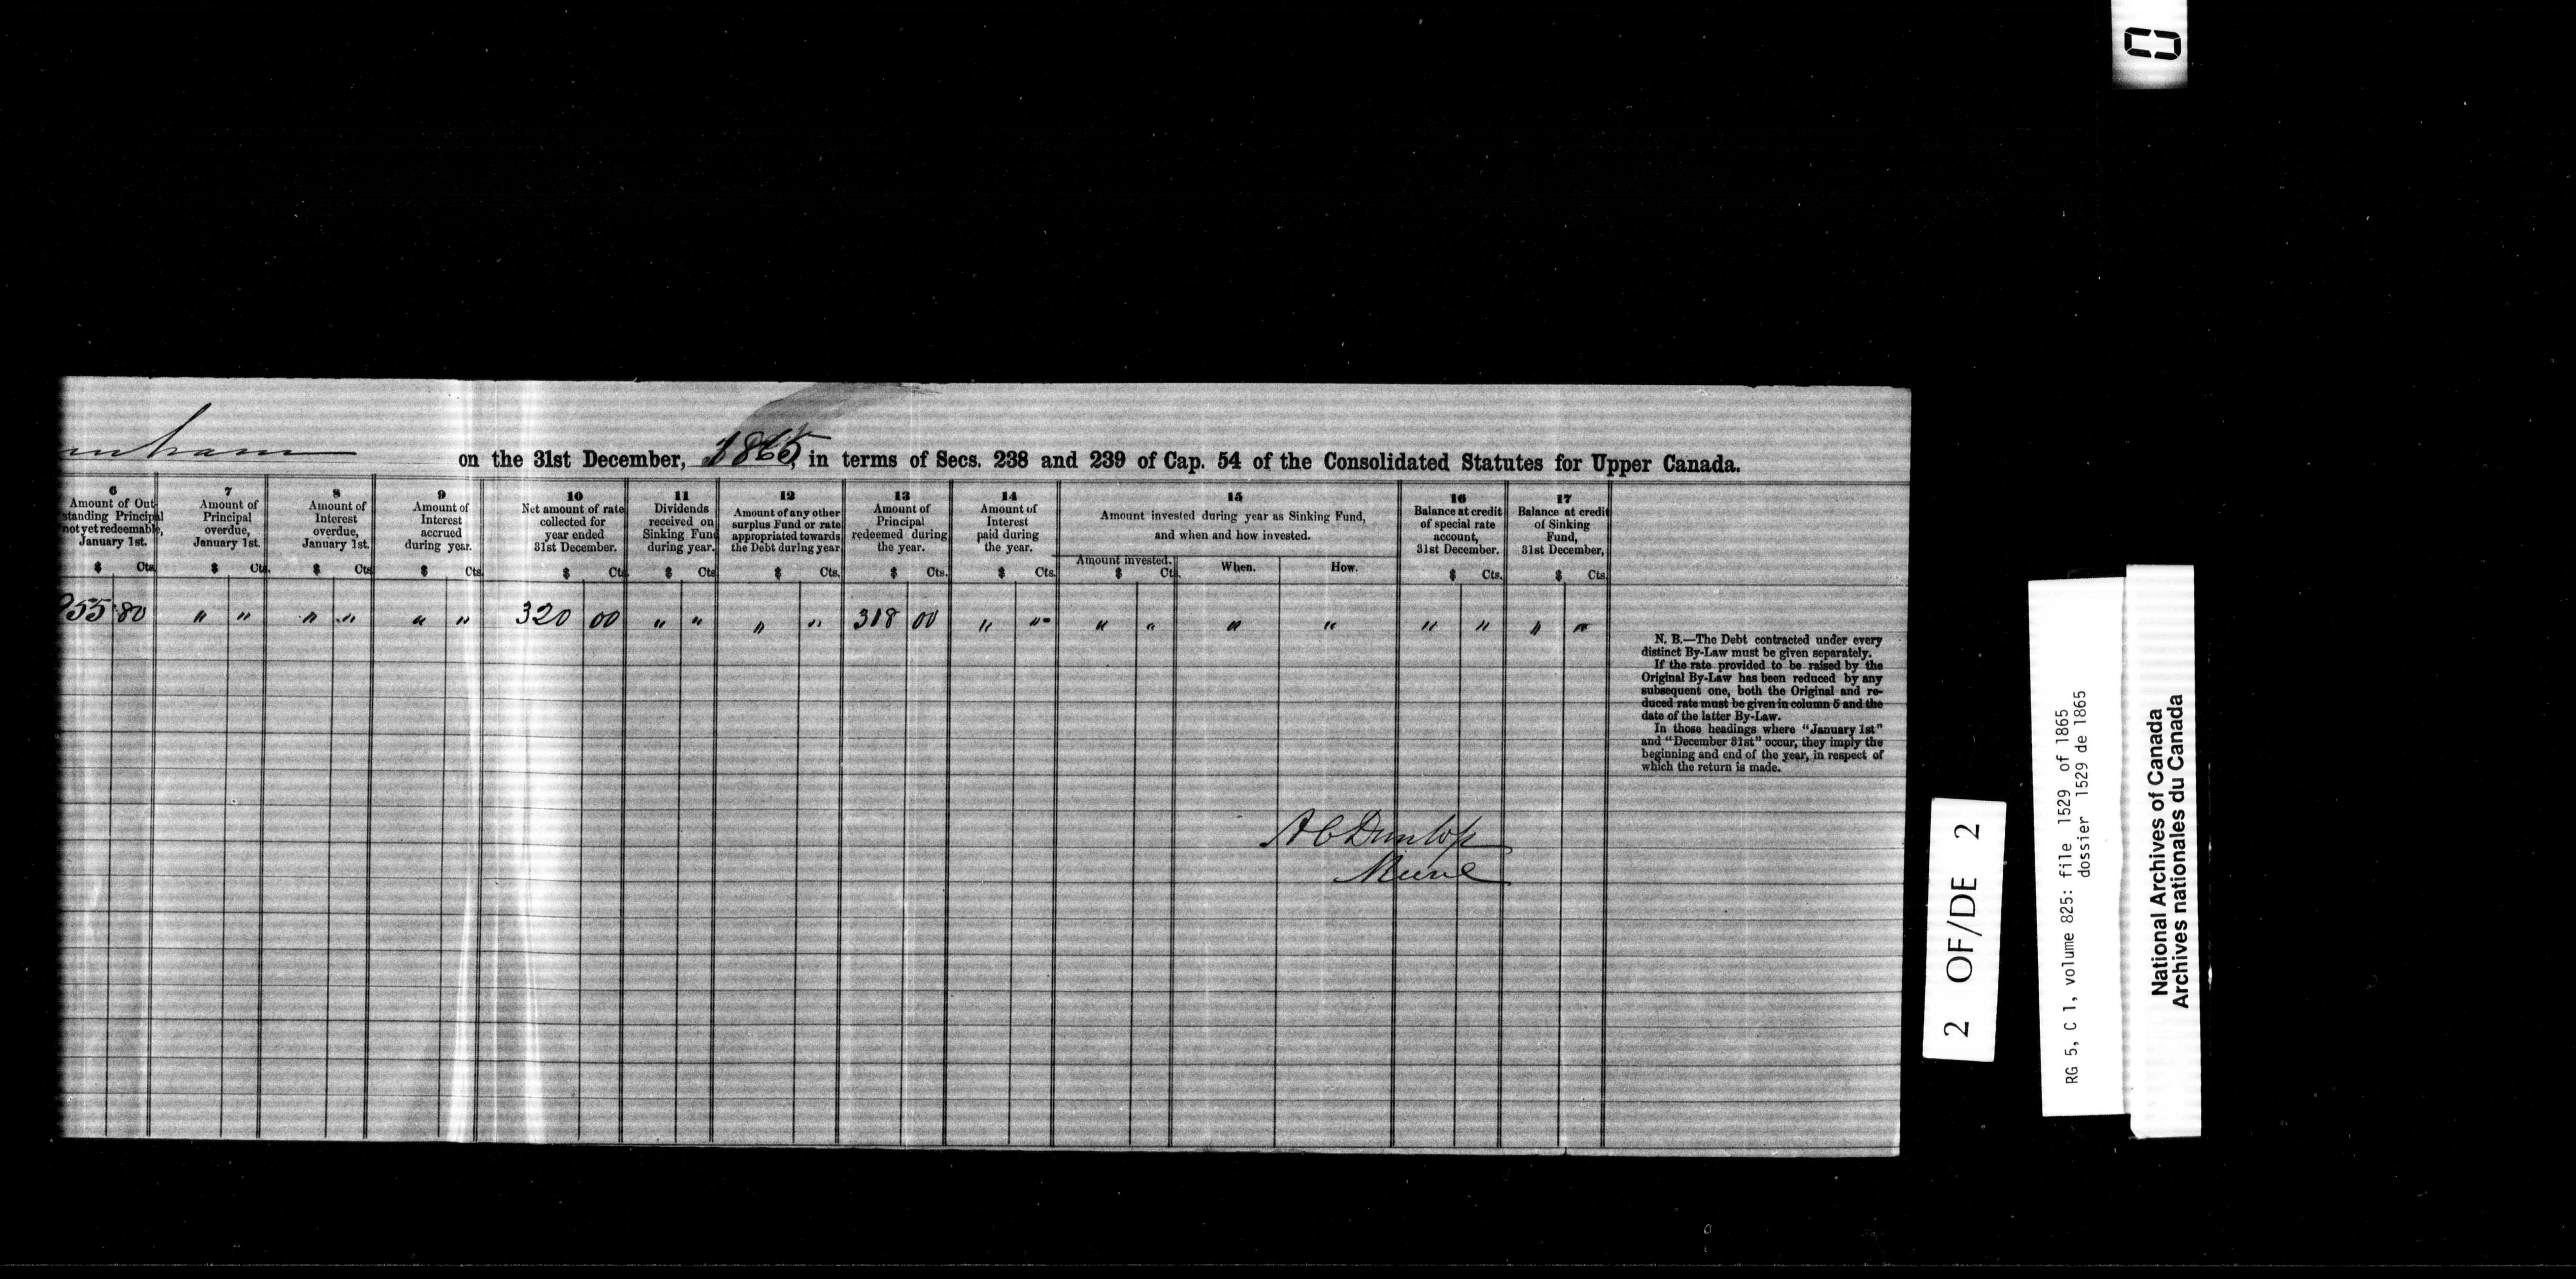 on the 31st December, 1865, in terms of Secs. 238 and 239 of Cap. 54 of the Consolidated Statutes for Upper Canada.
6
Amount of Out
standing Principal
not yet redeemable,
January 1st.
$ Cts.
7
Amount of
Principal
overdue,
January 1st.
$ Cts.
8
Amount of
Interest
overdue,
January 1st.
$ Cts.
9
Amount of
Interest
accrued
during year.
$ Cts.
10
Net amount of rate
collected for
year ended
31st December.
$ Cts.
11
Dividends
received on
Sinking Fund
during year.
$ Cts.
12
Amount of any other
surplus Fund or rate
appropriated towards
the Debt during year
$ Cts.
13
Amount of
Principal
redeemed during
the year.
$ Cts.
14
Amount of
Interest
paid during
the year.
$ Cts.
15
Amount invested during year as Sinking Fund,
and when and how invested.
Amount invested. When. How.
$ Ct.
16
Balance at credit
of special rate
account,
31st December.
$ Cts.
17
Balance at credit
of Sinking
Fund,
31st December,
$ Cts.
955 80 " " " " " " 320 00 " " " " 318 00 " " " " " " " " " "
N. B.—The Debt contracted under every
distinct By-Law must be given separately.
If the rate provided to be raised by the
Original By-Law has been reduced by any
subsequent one, both the Original and re-
duced rate must be given in column 5 and the
date of the latter By-Law.
In those headings where "January 1st"
and "December 31st" occur, they imply the
beginning and end of the year, in respect of
which the return is made.
A C Dunlop
2 OF/DE 2
RG 5, C 1, volume 825: file 1529 of 1865
dossier 1529 de 1865
National Archives of Canada
Archives nationales du Canada